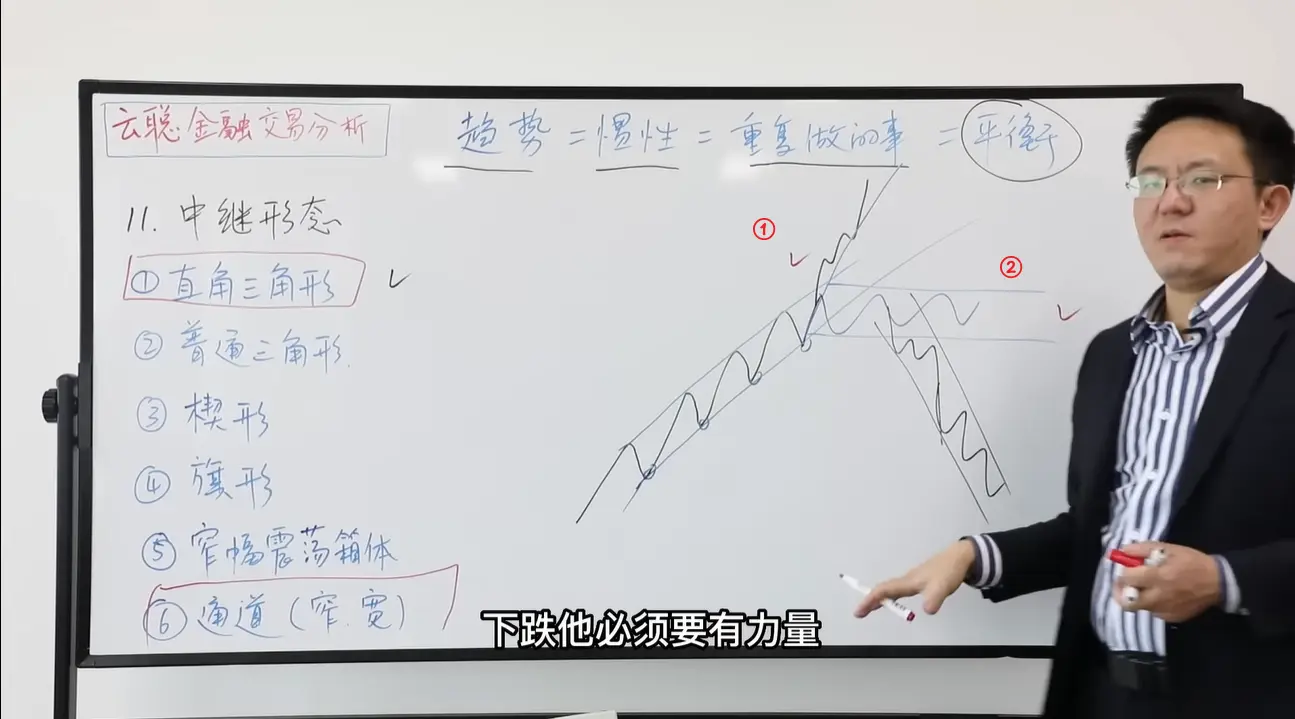 云聪金融交易分析
趋势 = 惯性 = 重复做的事 = 平衡
11. 中继形态
① 直角三角形 ✓
② 普通三角形.
③ 楔形
④ 旗形
⑤ 窄幅震荡箱体
⑥ 通道 (窄.宽)
①
②
下跌他必须要有力量